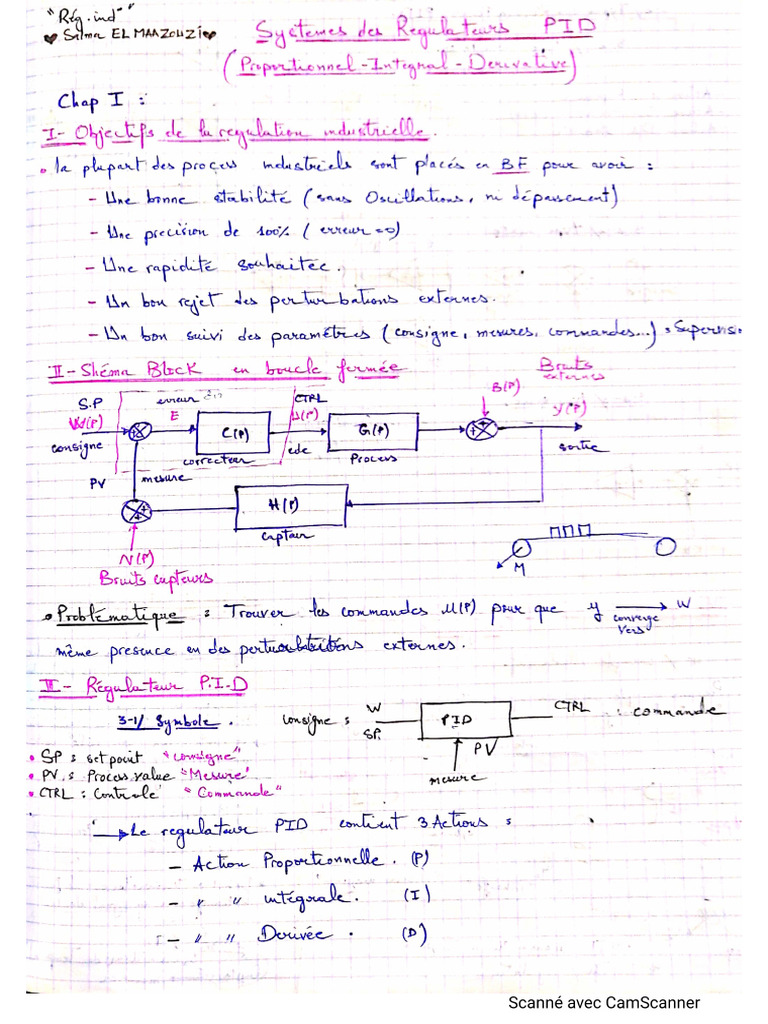 "Rég. ind"
Salma EL MAAZOUZI
Systemes des Regulateurs PID
(Proportionnel - Integral - Derivative)
Chap I :
I - Objectifs de la regulation industrielle.
la plupart des process industriels sont placés en BF pour avoir :
- Une bonne stabilité (sans Oscillations, ni dépassement)
- Une precision de 100% (erreur =0)
- Une rapidité souhaitée.
- Un bon rejet des perturbations externes.
- Un bon suivi des paramétres (consigne, mesures, commandes...) = Supervisio
II - Shéma Block en boucle fermée
Bruits externes
B(P)
S.P
W(P)
consigne
PV
erreur
E
C(P)
correcteur
CTRL
U(P)
cde
G(P)
Process
Y(P)
sortie
mesure
H(P)
captair
N(P)
Bruits capteurs
M
Problématique : Trouver les commandes U(P) pour que y converge vers W
même presence en des perturbations externes.
III - Régulateur P.I.D
3-1/ Symbole.
consigne : W
SP
PID
CTRL : commande
PV
mesure
SP : set point "consigne"
PV : Process value "Mesure"
CTRL : Controle "Commande"
Le regulateur PID contient 3 Actions :
- Action Proportionnelle. (P)
- " " intégrale. (I)
- " " Derivée. (D)
Scanné avec CamScanner